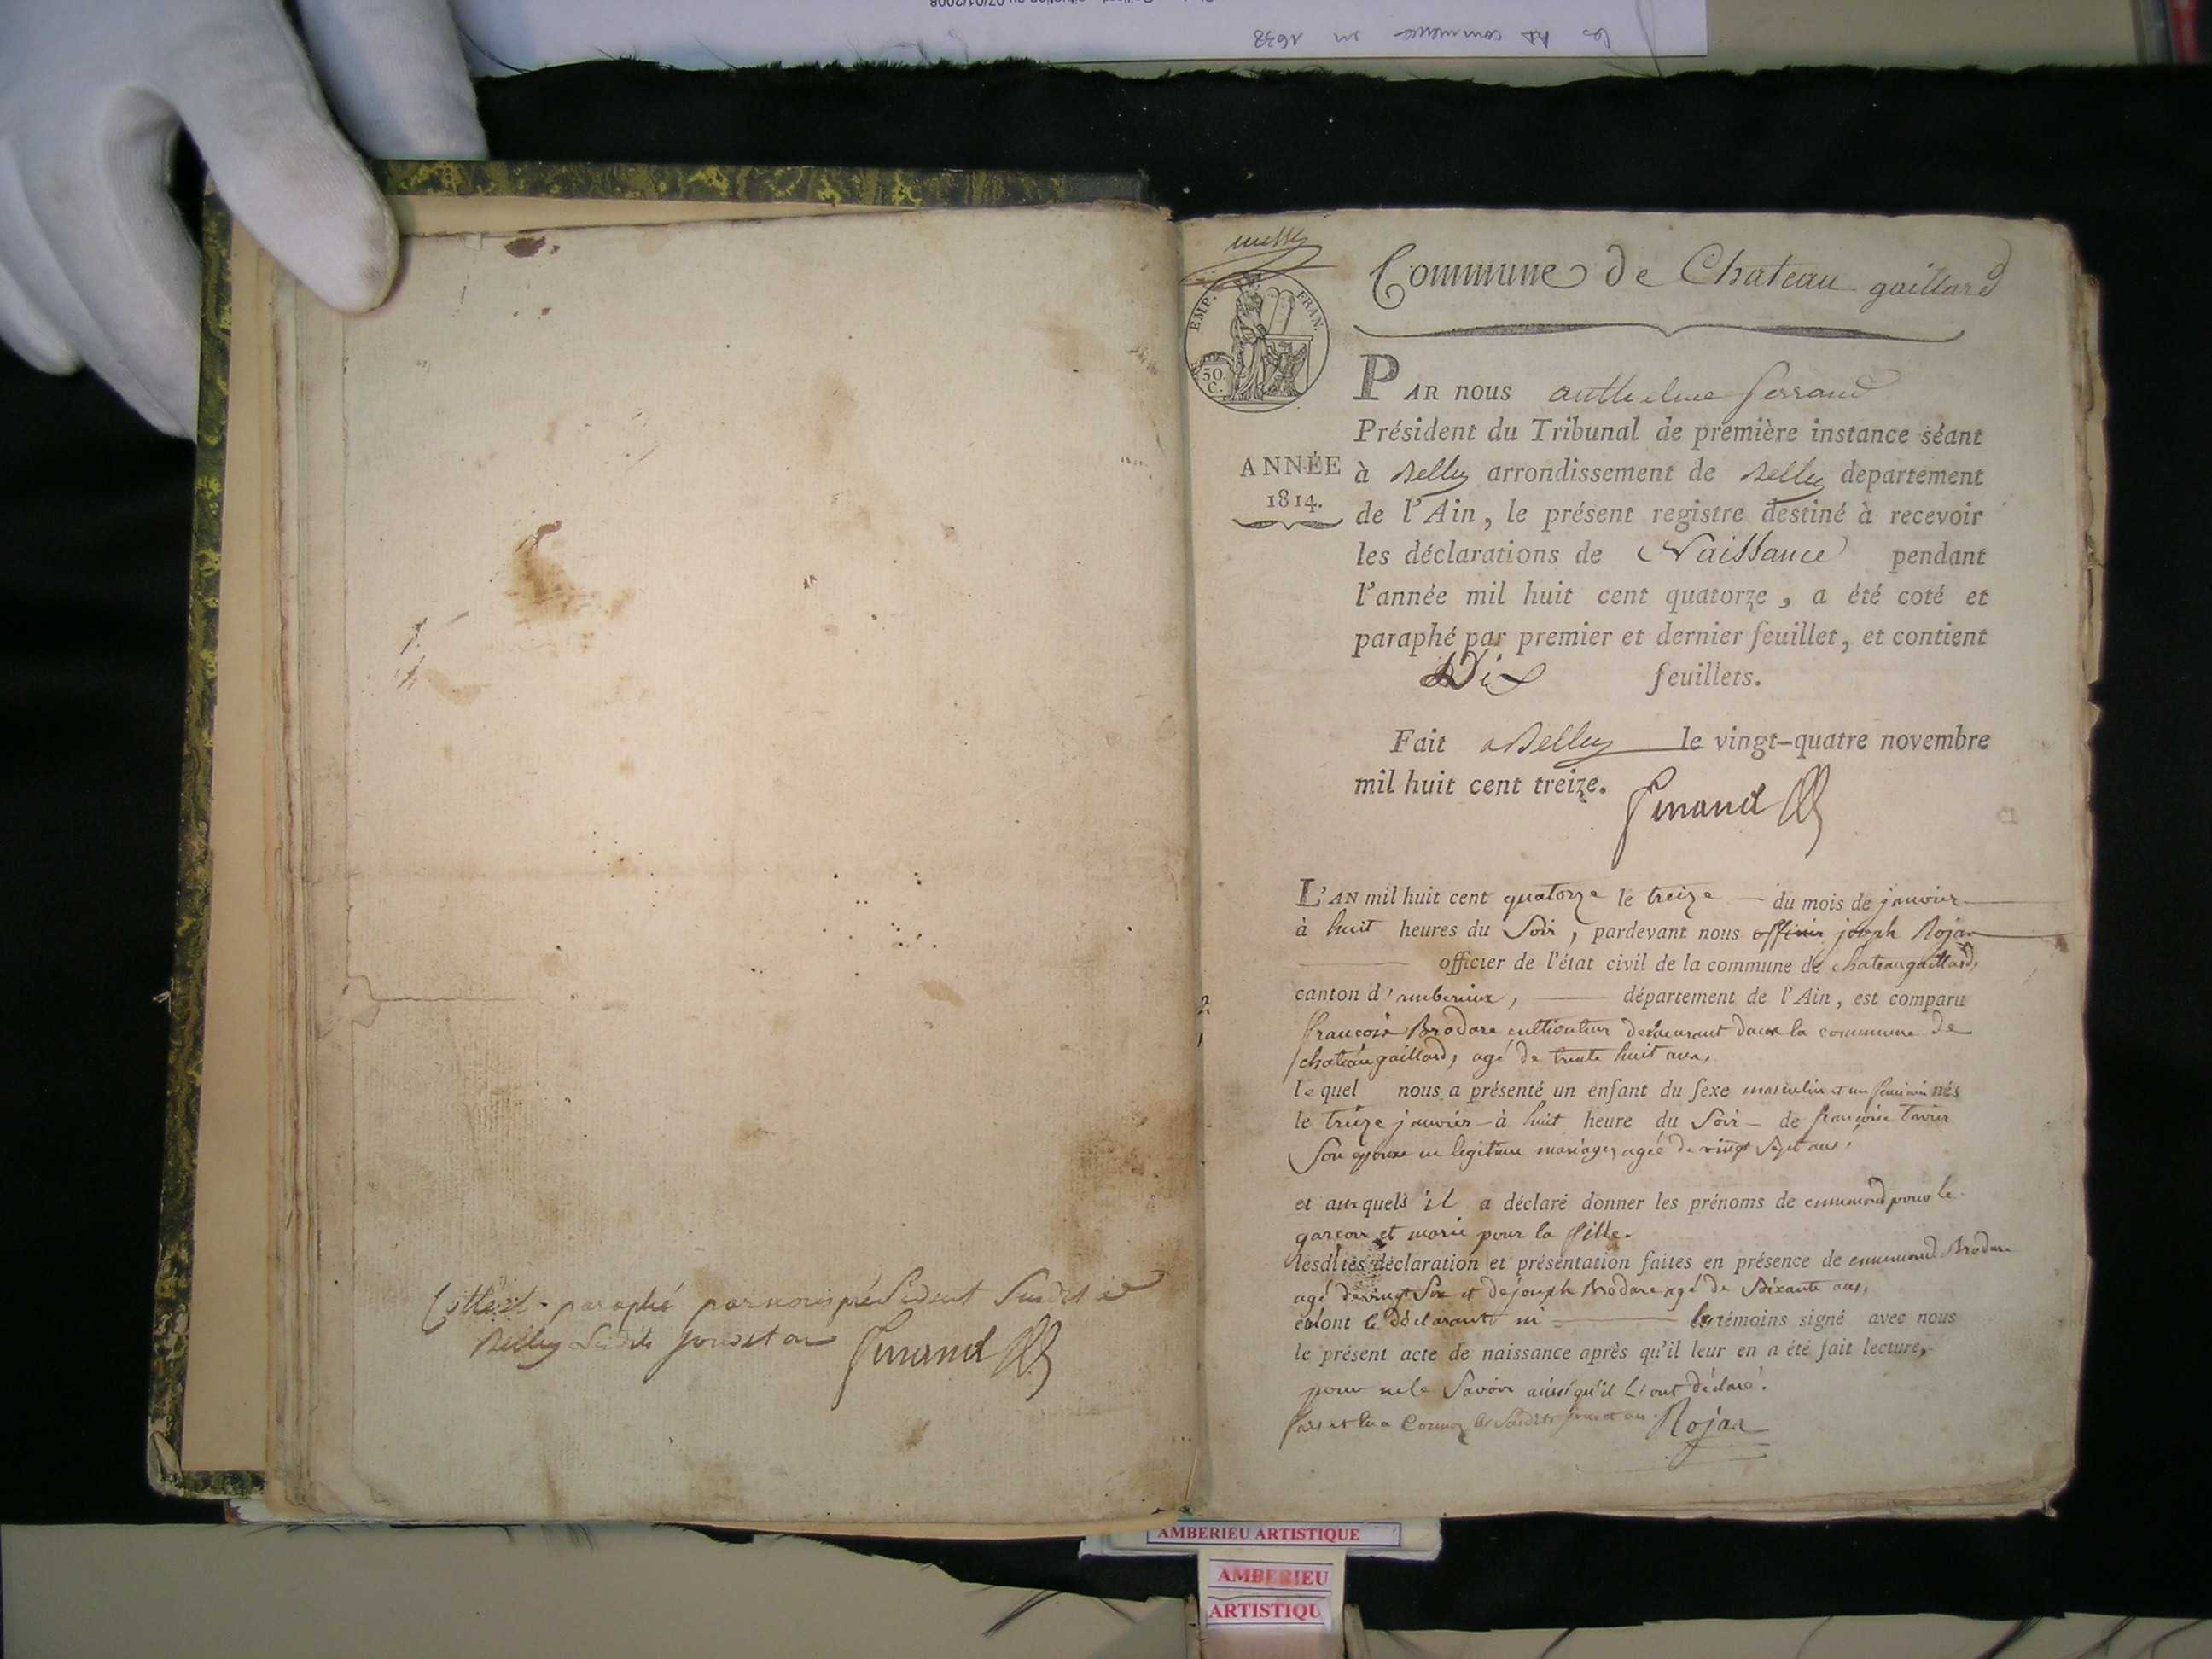 les commence en 1638
Cotté et paraphé par nous président susdit à
Belley lesdits jour et an Ferrand
Commune de Chateau gaillard
EMP. FRAN.
50.
C.
ANNÉE
1814.
PAR nous anthelme ferrand
Président du Tribunal de première instance séant
à Belley arrondissement de Belley departement
de l'Ain, le présent registre destiné à recevoir
les déclarations de Naissance pendant
l'année mil huit cent quatorze, a été coté et
paraphé par premier et dernier feuillet, et contient
Dix feuillets.
Fait a Belley le vingt-quatre novembre
mil huit cent treize. Ferrand
L'AN mil huit cent quatorze le treize du mois de janvier
à huit heures du Soir, pardevant nous officier joseph Rojan
officier de l'état civil de la commune de chateaugaillard,
canton d'amberieux, département de l'Ain, est comparu
francois Brodare cultivateur demeurant dans la commune de
chateaugaillard, agé de trente huit ans,
le quel nous a présenté un enfant du sexe masculin et un feminin nés
le treize janvier à huit heure du Soir de francoise Tavier
Son epouse en legitime mariage, agée de vingt Sept ans,
et auxquels il a déclaré donner les prénoms de ennemond pour le
garcon et marie pour la fille.
lesdites déclaration et présentation faites en présence de ennemond Brodare
agé de vingt Six et de joseph Brodare agé de Soixante ans,
et ont le déclarant ni les témoins signé avec nous
le présent acte de naissance après qu'il leur en a été fait lecture,
pour ne le Savoir ainsi qu'il l'ont déclaré.
fait et lu a Cormoz les Susdits jour et an Rojan
AMBERIEU ARTISTIQUE
AMBERIEU
ARTISTIQU